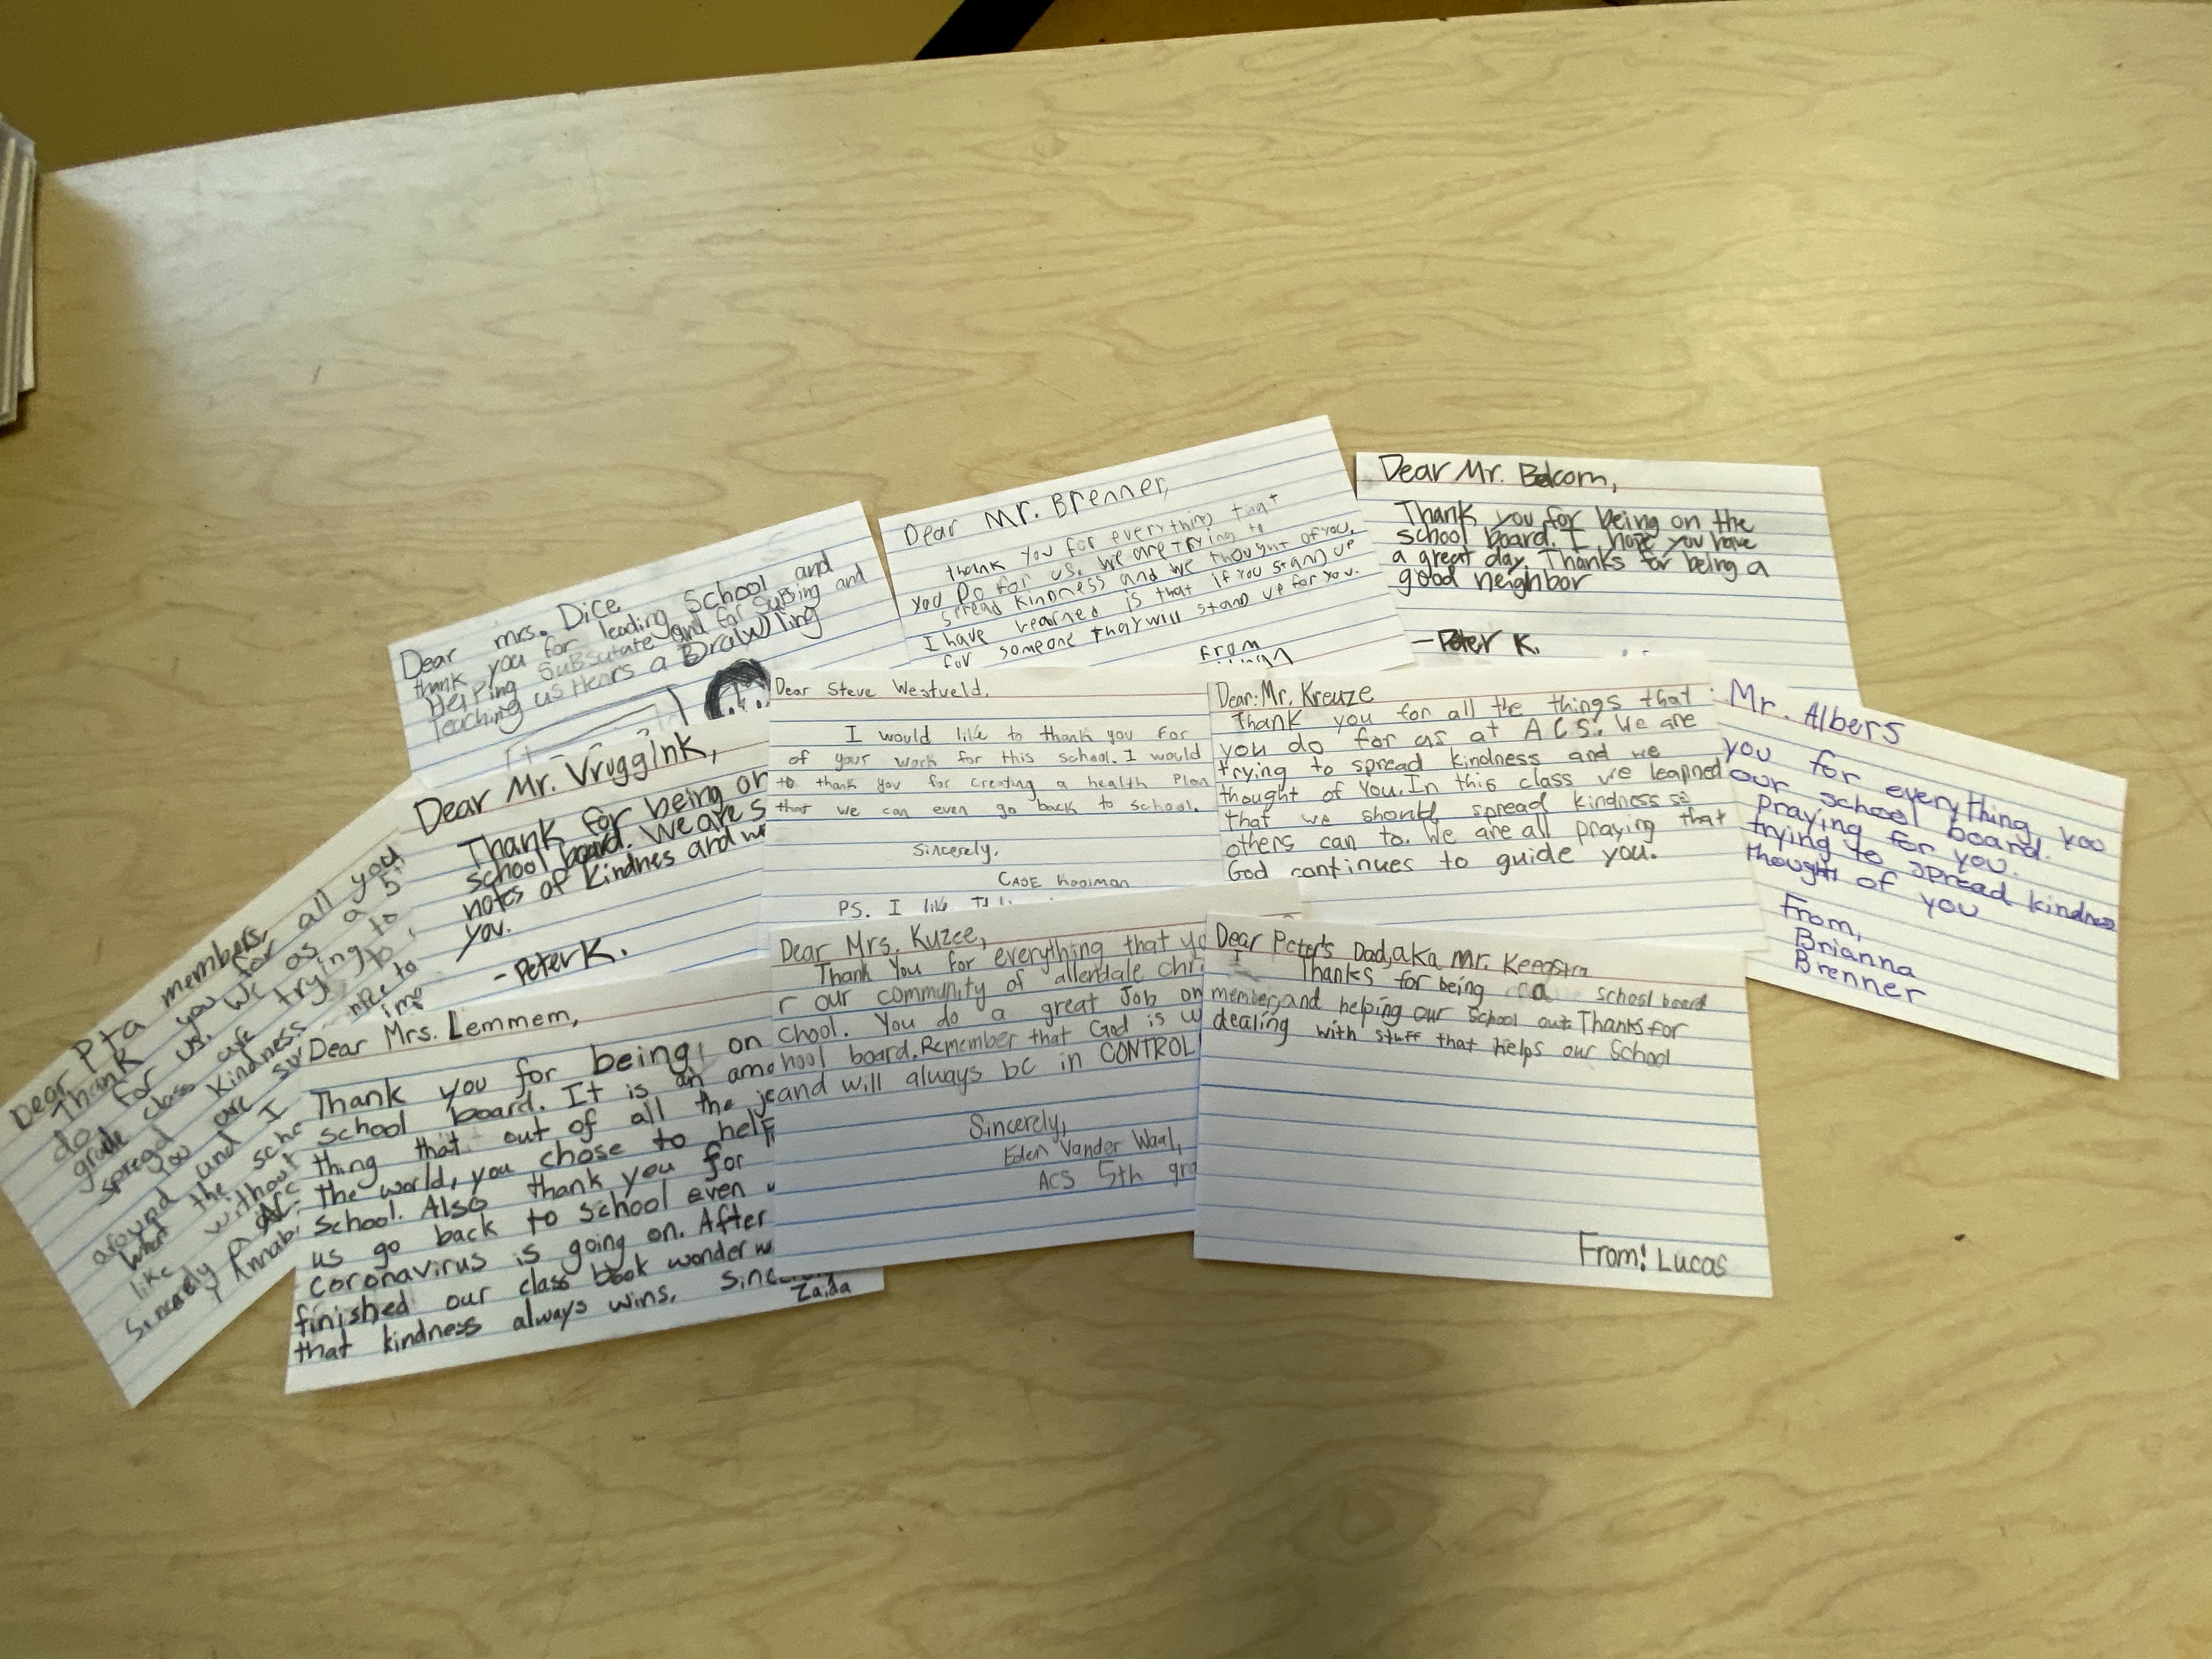 Dear mrs. Dice
thank you for leading School and
HelPing SuBsatute and for SuBing and
Teaching us Hears a Drawling
Dear Mr. Brenner,
thank you for everything that
you Do for us. we are trying to
spread kindness and we thought of you.
I have learned is that if you stand up
for someone they will stand up for you.
From
Dear Mr. Balcom,
Thank you for being on the
school board. I hope you have
a great day. Thanks for being a
good neighbor
-Peter K.
Dear Mr. Vruggink,
Thank for being on
school board. We are s
notes of kindness and we
you.
-Peter K.
Dear Steve Westveld.
I would like to thank you for
of your work for this school. I would
to thank you for creating a health Plan
that we can even go back to school.
Sincerely.
CASE Kooiman
PS. I like
Dear: Mr. Kreuze
Thank you for all the things that
you do for us at ACS. We are
trying to spread kindness and we
thought of you. In this class we learned
that we should spread kindness so
others can to. We are all praying that
God continues to guide you.
Mr. Albers
you for everything you
our school board.
praying for you.
trying to spread kindness
thought of you
From,
Brianna
Brenner
Dear Pta members,
Thank you for all you
do for us. We as a 5
grade class are trying to
spread kindness
you are
around and I
what the
like without
Sincerely
Annab
Dear Mrs. Lemmem,
Thank you for being on
school board. It is an am
thing that out of all the j
the world, you chose to help
school. Also thank you for
us go back to school even
coronavirus is going on. After
finished our class book wonder w
that kindness always wins. Sinc
Zaida
Dear Mrs. Kuzee,
Thank You for everything that yo
r our community of allendale chri
chool. You do a great Job on
hool board. Remember that God is w
and will always be in CONTROL
Sincerely,
Eden Vander Waal,
ACS 5th gra
Dear Peter's Dad, aka Mr. Keegstra
Thanks for being a school board
member, and helping our school out. Thanks for
dealing with stuff that helps our School
From: Lucas